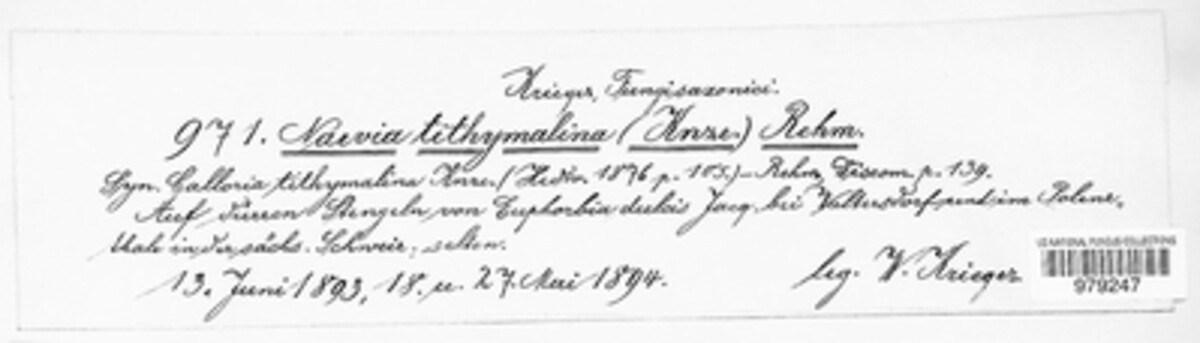 Krieger, Fungi saxonici.
971. Naevia tithymalina (Knze.) Rehm.
Syn. Calloria tithymalina Knze. (Hedw. 1876 p. 105.) – Rehm, Discom. p. 139.
Auf dürren Stengeln von Euphorbia dulcis Jacq. bei Waltersdorf und im Polenz-
thale in der sächs. Schweiz; selten.
13. Juni 1893, 18. u. 27. Mai 1894.
leg. W. Krieger
US NATIONAL FUNGUS COLLECTIONS
979247